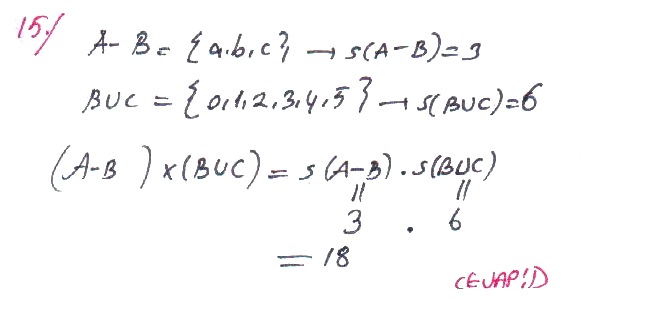 15./ A-B = {a,b,c} → s(A-B)=3
BUC = {0,1,2,3,4,5} → s(BUC)=6
(A-B) x (BUC) = s(A-B) . s(BUC)
= =
3 . 6
= 18
CEVAP!D